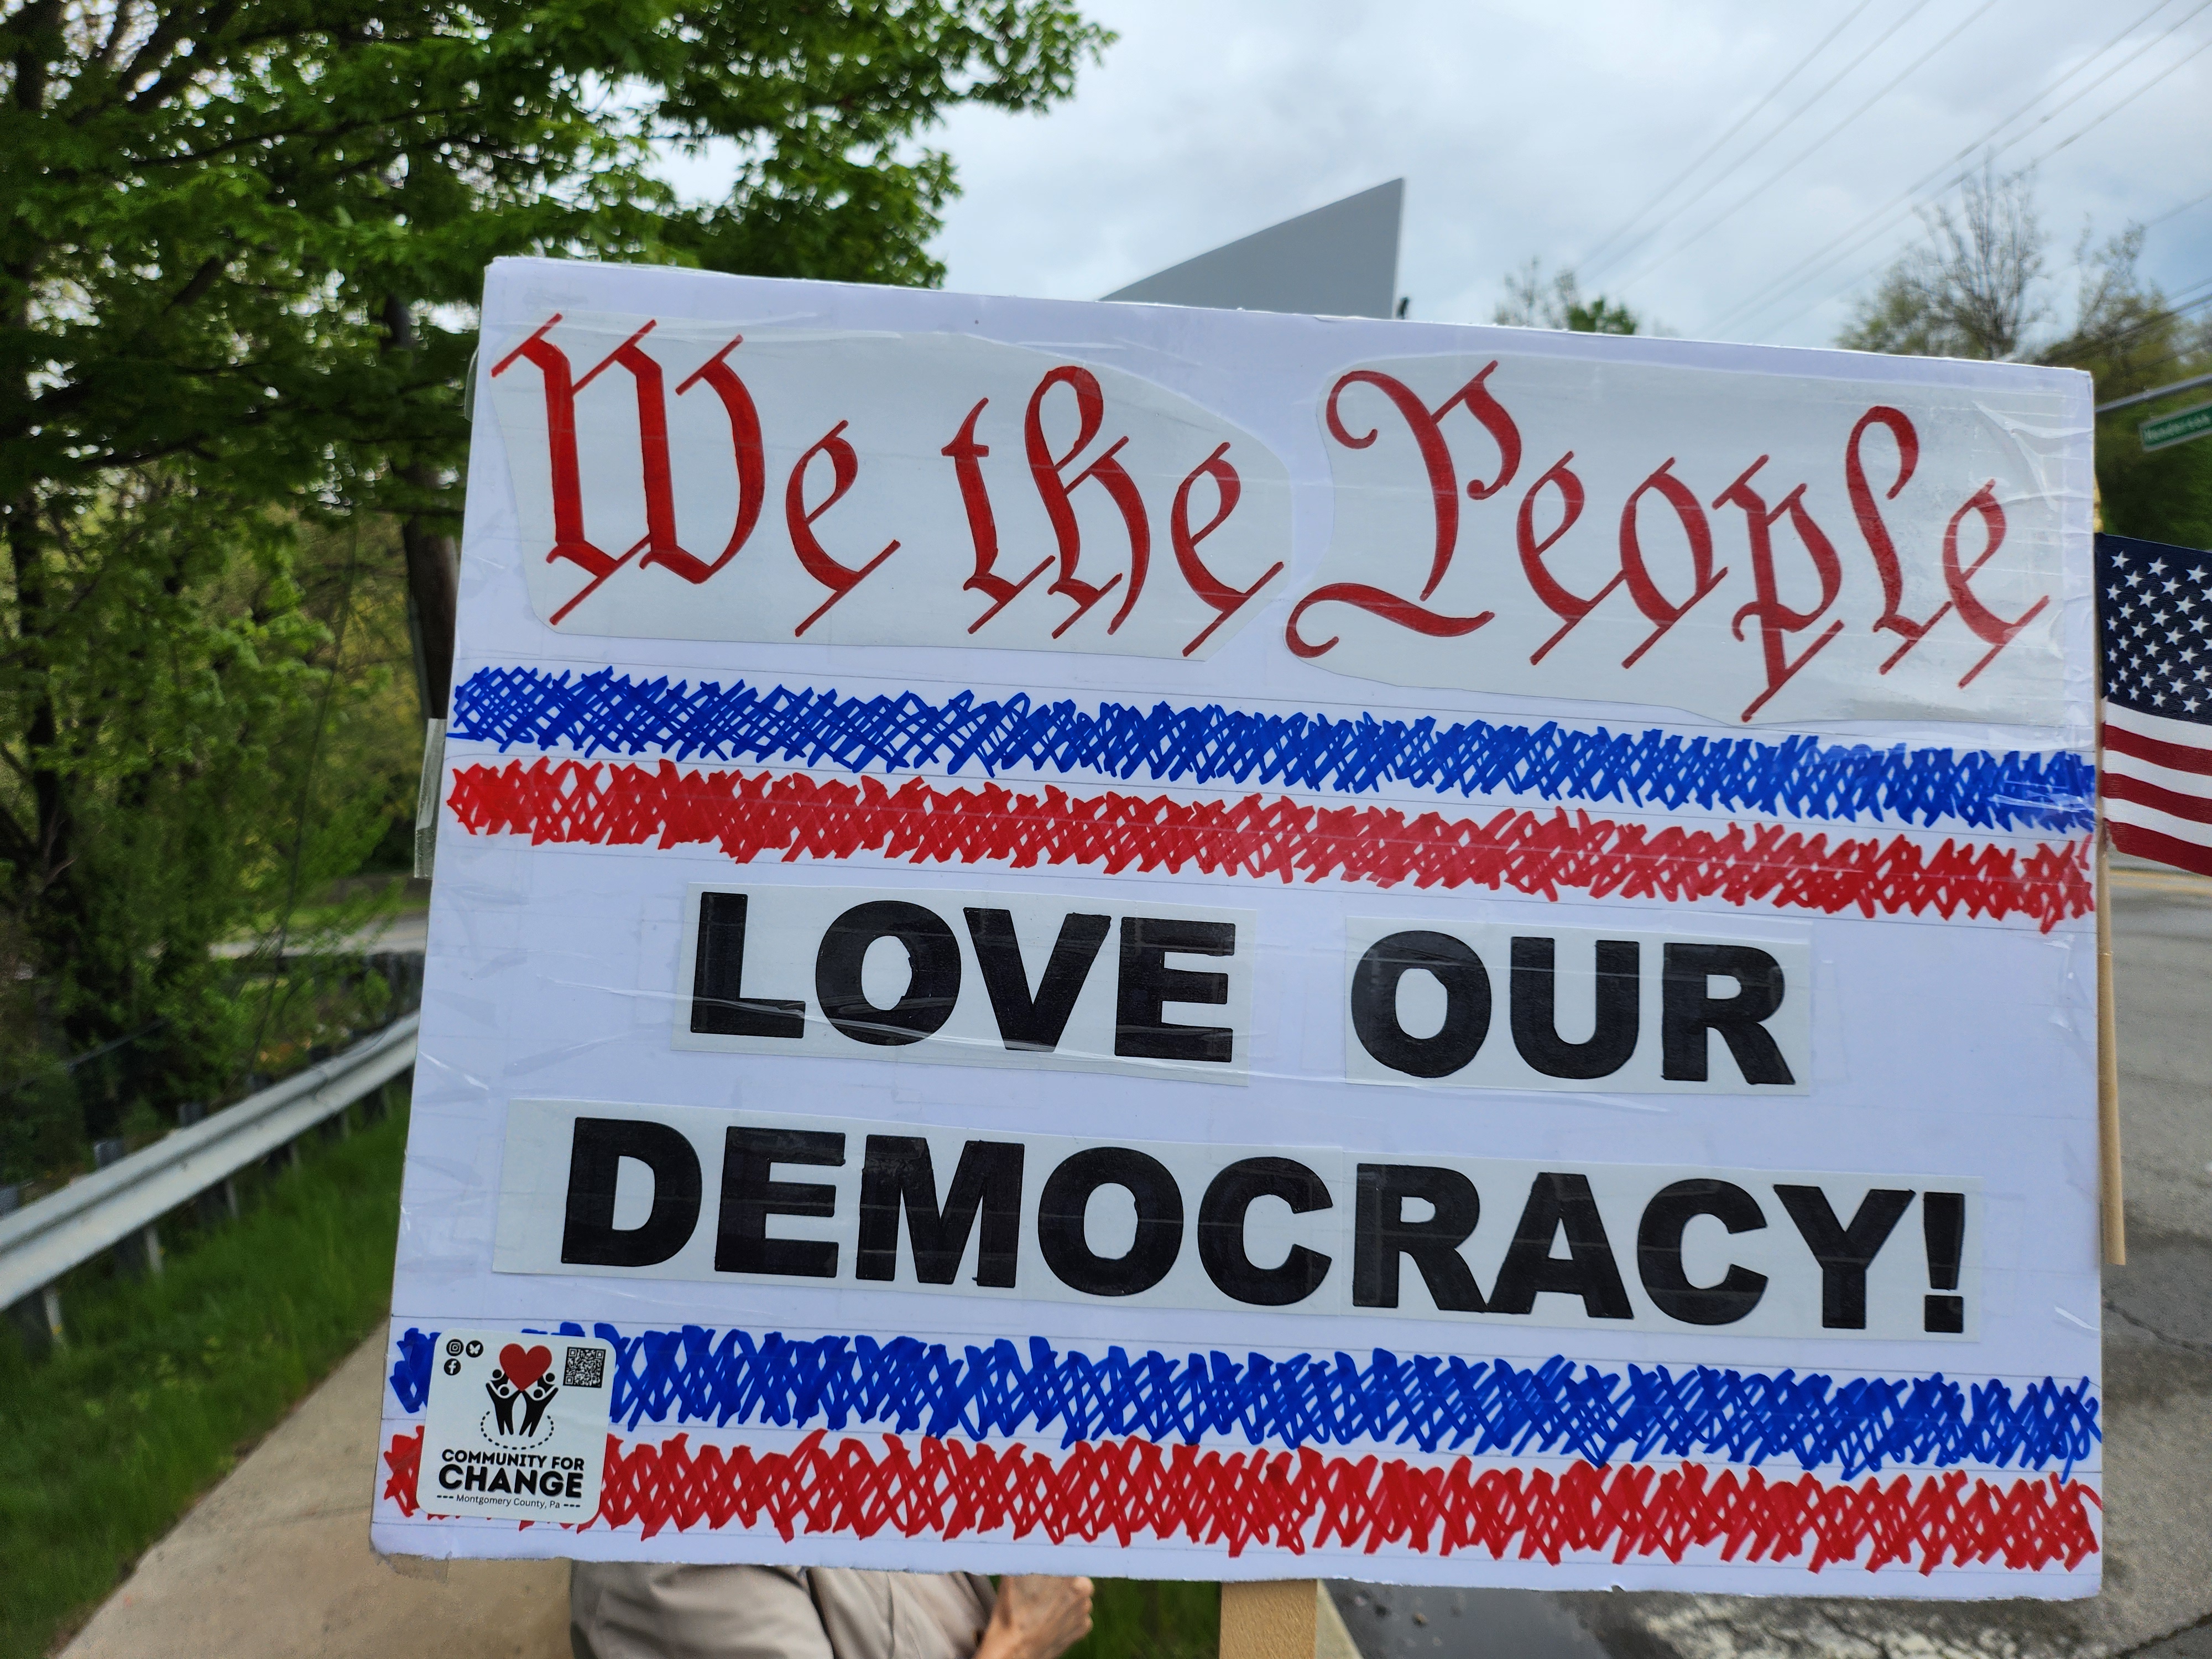 We the People
LOVE OUR
DEMOCRACY!
COMMUNITY FOR
CHANGE
--- Montgomery County, Pa ---